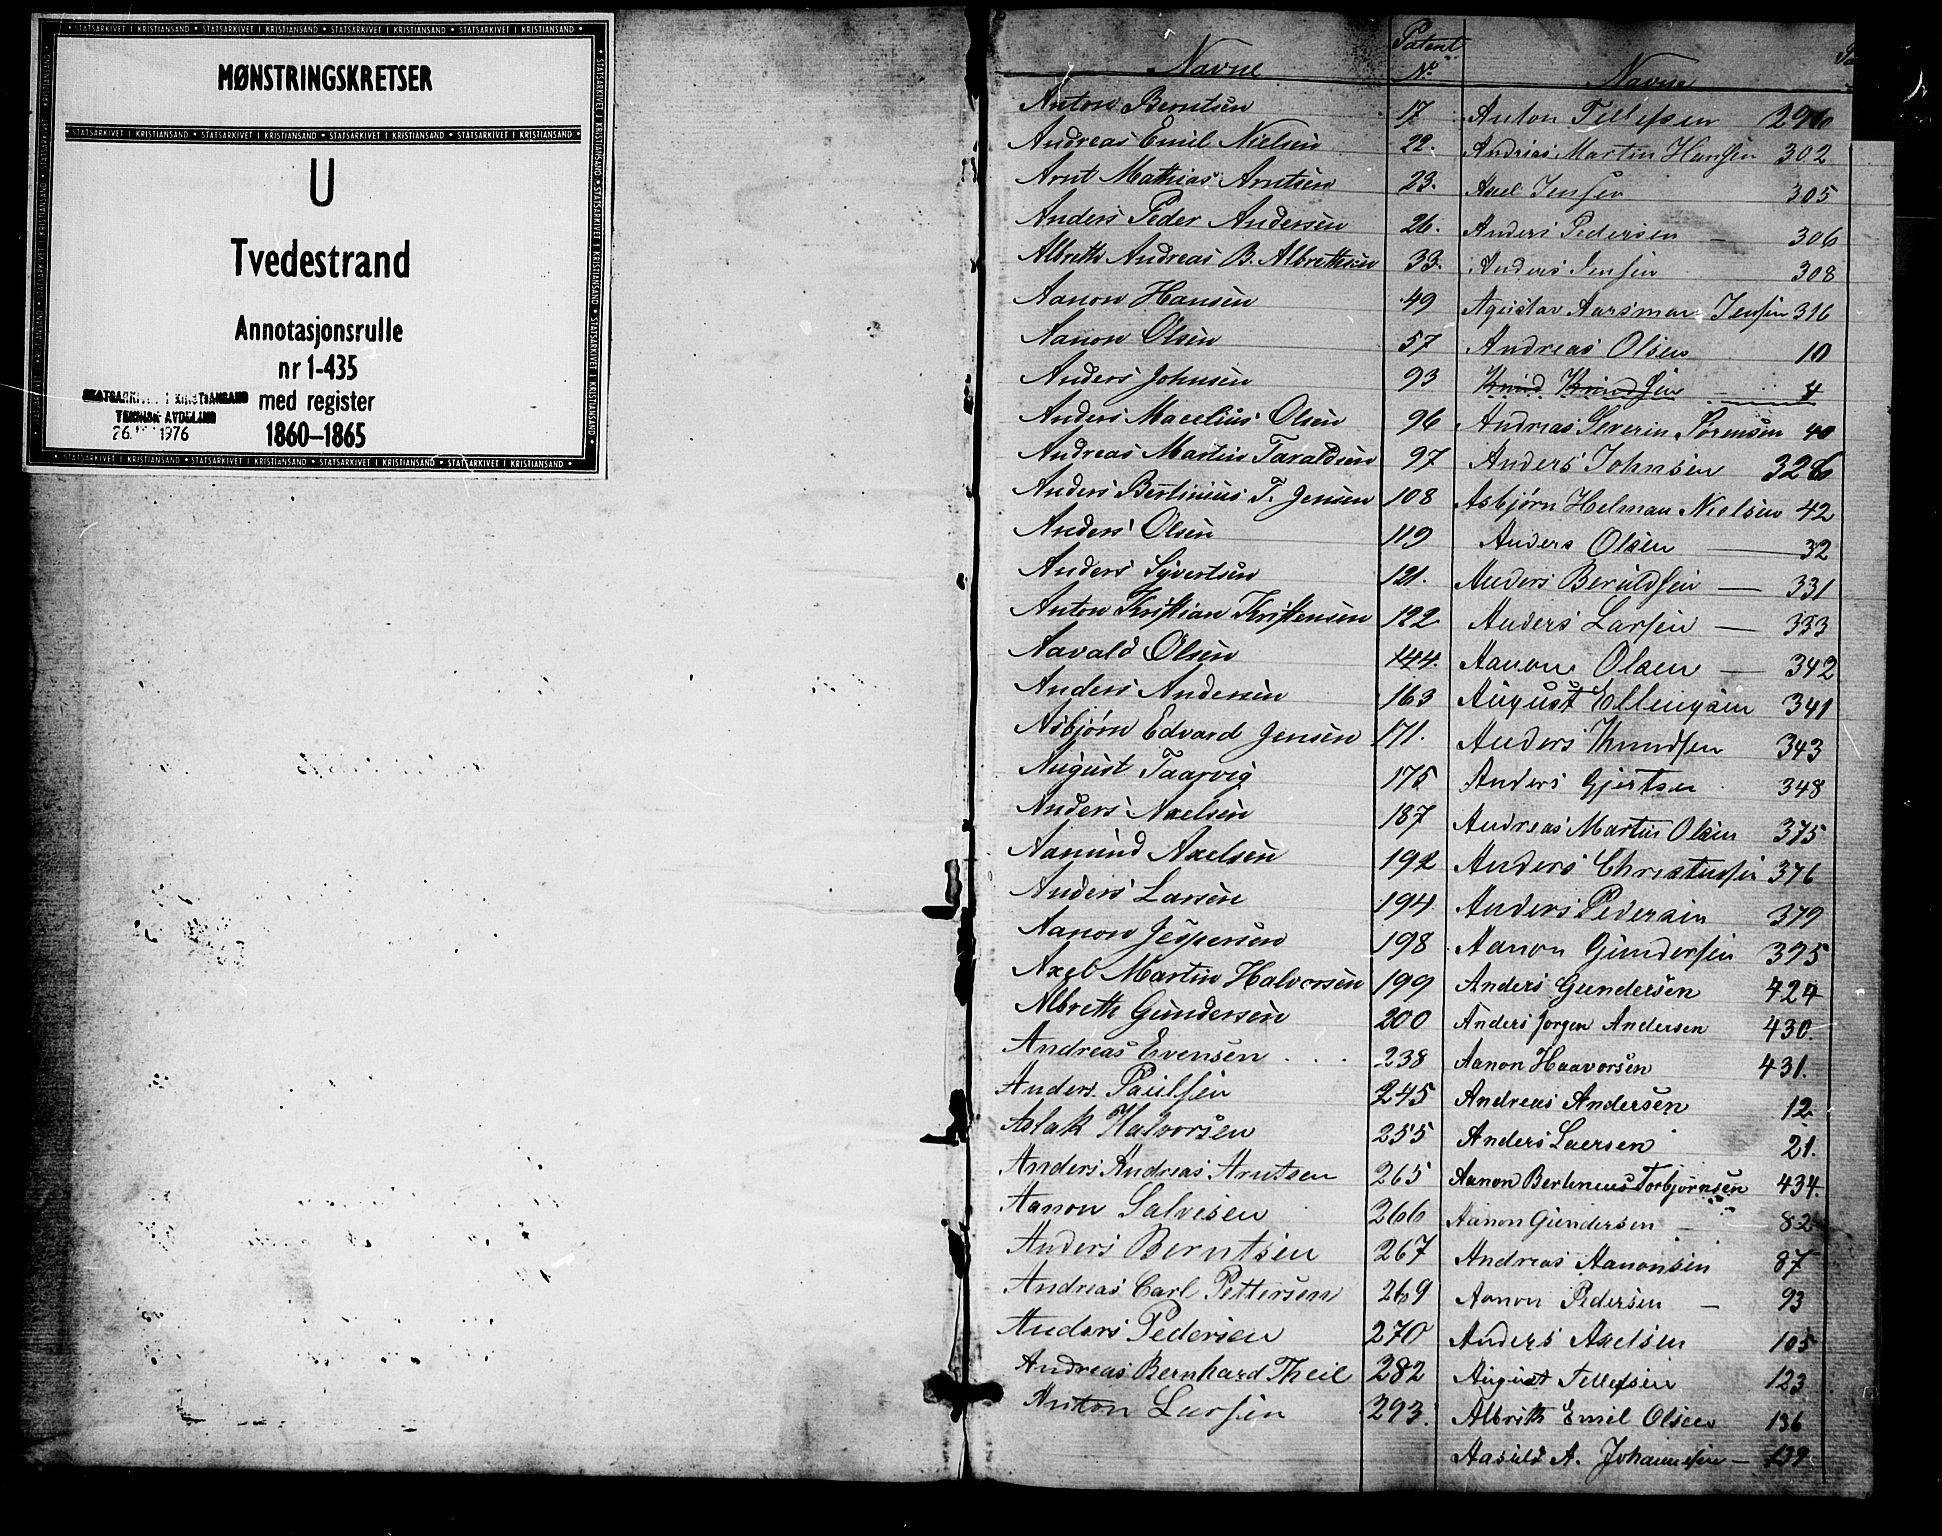 MØNSTRINGSKRETSER
U
Tvedestrand
Annotasjonsrulle
nr 1-435
med register
1860–1865
STATSARKIVET I KRISTIANSAND
TEKNISK AVDELING
26. 1976
Navne Patent No
Anton Berntsen 17
Andreas Emil Nielsen 22.
Arnt Mathias Arntsen 23.
Anders Peder Andersen 26.
Albreth Andreas B. Albrethsen 33.
Aanon Hansen 49
Aanon Olsen 57
Anders Johnsen 93
Anders Macelius Olsen 96
Andreas Martin Taraldsen 97
Anders Bertinius T. Jensen 108
Anders Olsen 119
Anders Syvertsen 121.
Anton Kristian Kristensen 122
Aavald Olsen 144.
Anders Andersen 163
Asbjørn Edvard Jensen 171.
August Taarvig 175
Anders Axelsen 187
Aamund Axelsen 192
Anders Larsen 194
Aanon Jespersen 198
Axel Martin Halvorsen 199
Albreth Gundersen 200
Andreas Evensen 238
Anders Paulsen 245
Aslak Halvorsen 255
Anders Andreas Arntsen 265
Aanon Salvesen 266
Anders Berntsen 267
Andreas Carl Pettersen 269
Anders Pedersen 270
Andreas Bernhard Theil 282
Anton Larsen 293.
Navne
Anton Tellefsen 296
Andreas Martin Hansen 302
Axel Jensen 305
Anders Pedersen — 306
Anders Jensen 308
Agustav Aarsmar Jensen 316
Andreas Olsen 10
Knud Knudsen 4
Andreas Severin Sørensen 40
Anders Johnsen 326
Asbjørn Helman Nielsen 42
Anders Olsen — 32
Anders Beruldsen — 331
Anders Larsen — 333
Aanon Olsen — 342
August Ellingsen 341
Anders Knudsen 343
Anders Gjertsen 348
Andreas Martin Olsen 375
Anders Christensen 376
Anders Pedersen 379
Aanon Gundersen 395
Anders Gundersen 424
Anders Jørgen Andersen 430.
Aanon Haavorsen 431.
Andreas Andersen 12
Anders Laersen 21.
Aanon Bertinius Torbjørnsen 434.
Aanon Gundersen — 82
Andreas Aanonsen 87
Aanon Pedersen — 93
Anders Axelsen 105
August Tellefsen 123
Albrith Emil Olsen 136
Aasuld A. Johannesen — 139